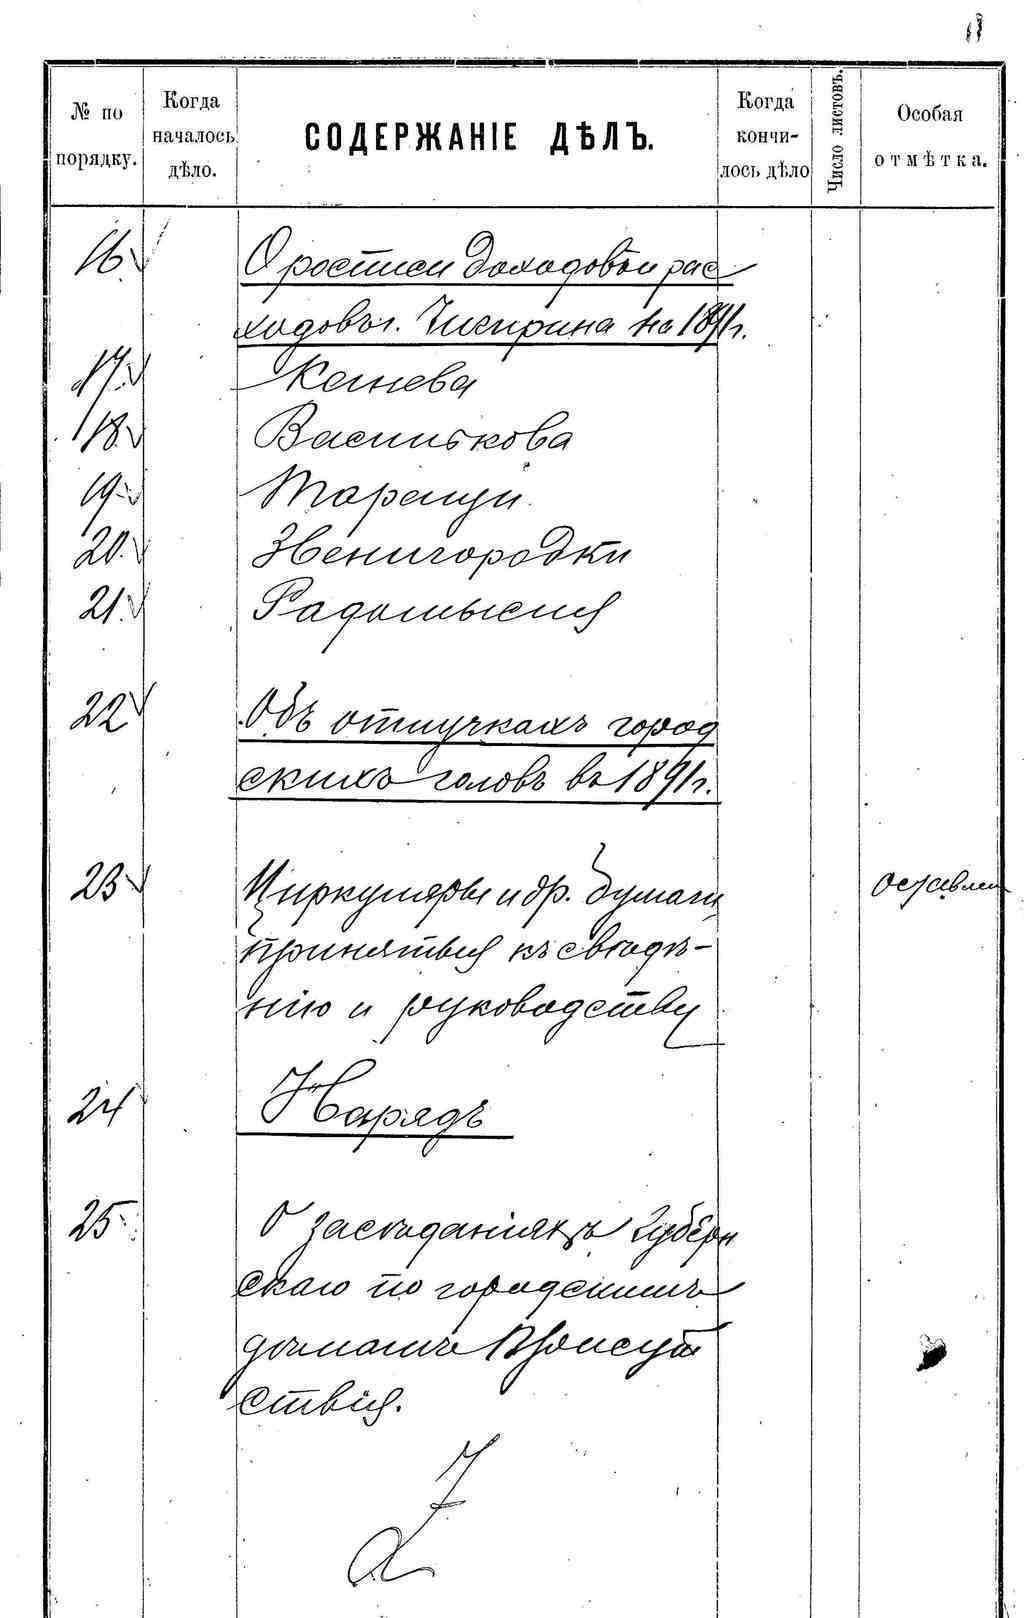 № по порядку.
Когда началось дѣло.
СОДЕРЖАНІЕ ДѢЛЪ.
Когда кончилось дѣло
Число листовъ.
Особая отмѣтка.
16
О росписи доходовъ и рас
ходовъ г. Чигирина на 1891 г.
17. Канева
18. Василькова
19. Таращи
20. Звенигородки
21. Радомысля
22 Объ отлучкахъ город
скихъ головъ въ 1891 г.
23 Циркуляры и др. бумаги
принятыя къ свѣдѣ-
нію и руководству
24 Нарядъ
25 О засѣданіяхъ Губерн
скаго по городскимъ
дѣламъ Присут
ствія.